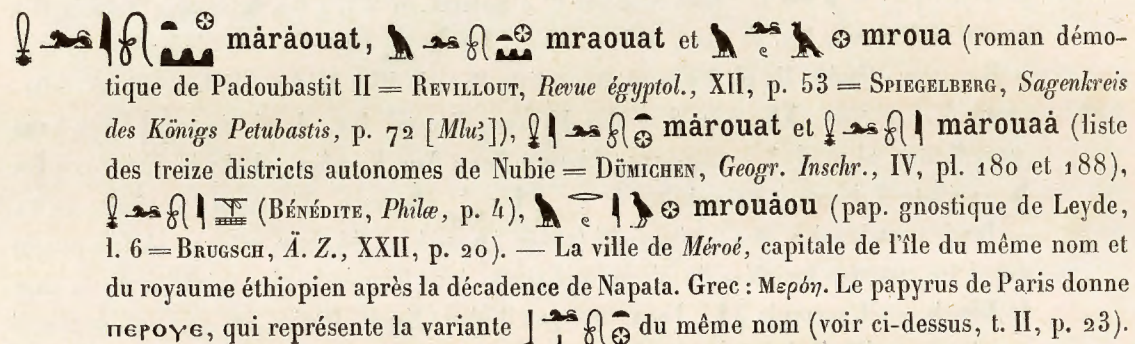 màràouat, mraouat et mroua (roman démo-
tique de Padoubastit II = REVILLOUT, Revue égyptol., XII, p. 53 = SPIEGELBERG, Sagenkreis
des Königs Petubastis, p. 72 [Mluꜣ]), màrouat et màrouaà (liste
des treize districts autonomes de Nubie = DÜMICHEN, Geogr. Inschr., IV, pl. 180 et 188),
(BÉNÉDITE, Philæ, p. 4), mrouàou (pap. gnostique de Leyde,
l. 6 = BRUGSCH, Ä. Z., XXII, p. 20). — La ville de Méroé, capitale de l'île du même nom et
du royaume éthiopien après la décadence de Napata. Grec : Μερόη. Le papyrus de Paris donne
ⲡⲉⲣⲟⲩⲉ, qui représente la variante du même nom (voir ci-dessus, t. II, p. 23).